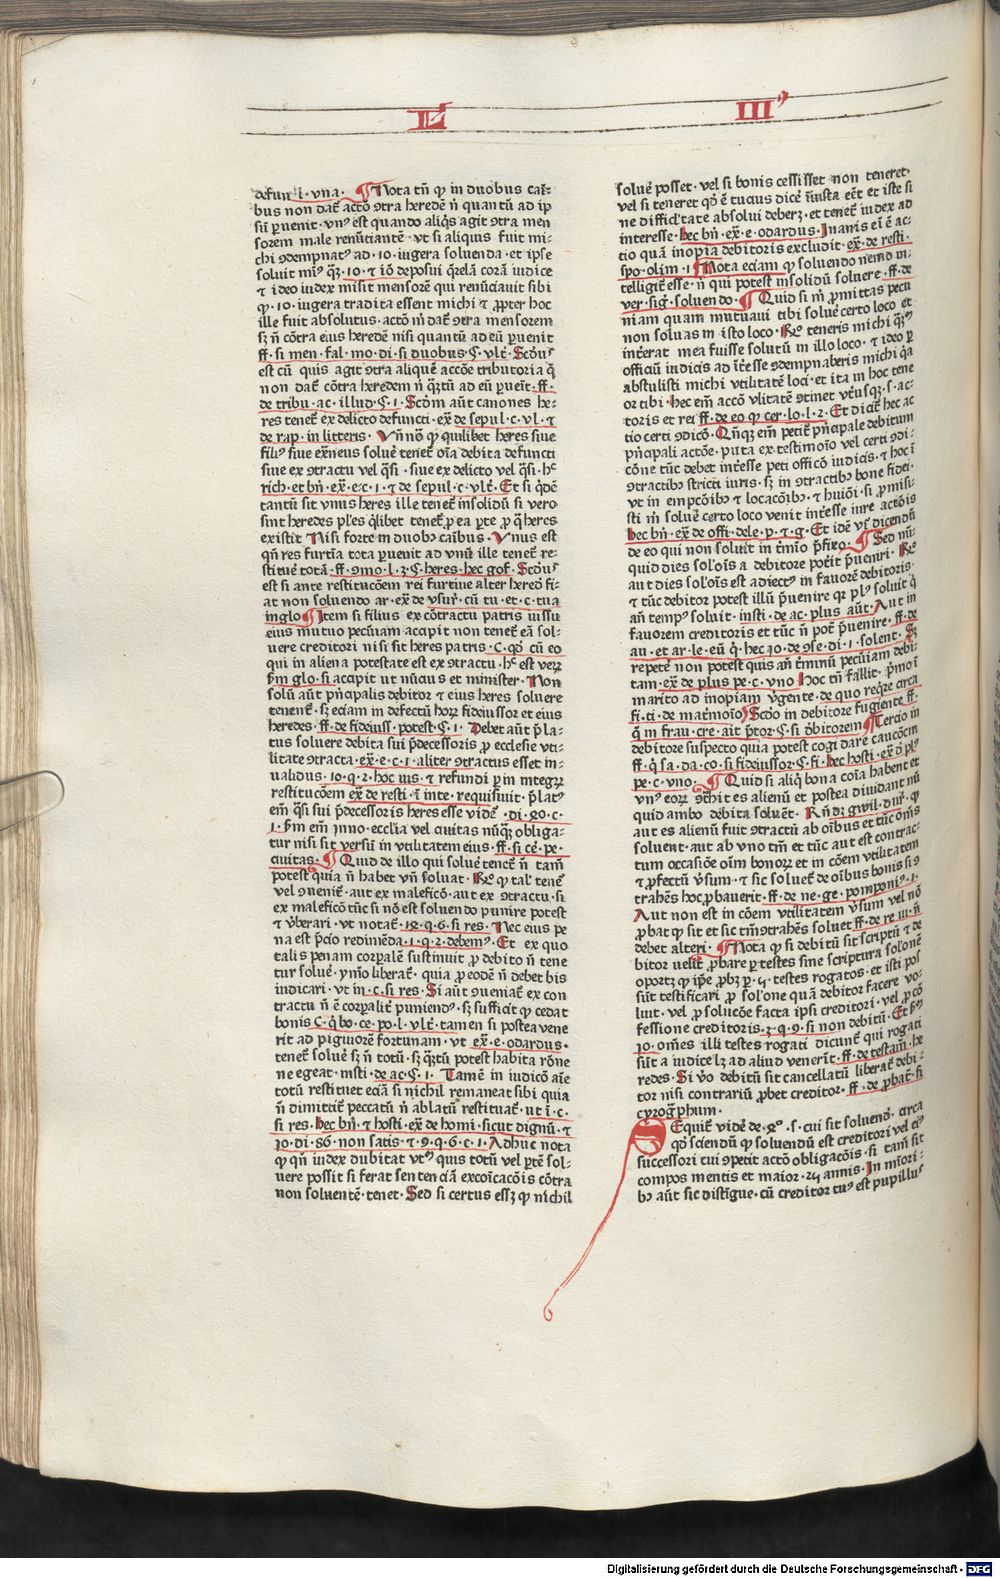 L
III
defuncti · vna · ¶ Nota tn̄ ꝙ in duobus casi-
bus non dat̄ actō ꝯtra heredē n̄ quantū ad ip
sū ꝑuenit · vnꝰ est quando aliq̄s agit ꝯtra men
sorem male renūtiantē · vt si aliquis fuit mi-
chi ꝯdempnatꝰ ad · 10 · iugera soluenda · et ipse
soluit miꝰ q̄ꝫ · 10 · ⁊ iō deposui q̄relā corā iudice
⁊ ideo iudex misit mensorē qui renūciauit sibi
ꝙ · 10 · iugera tradita essent michi ⁊ ꝓpter hoc
ille fuit absolutus · actō m̄ dat̄ ꝯtra mensorem
sꝫ n̄ cōtra eius heredē nisi quantū ad eū ꝑuenit
ff · si men · fal · mo · di · si duobus · § · vlt̄ · Scd̄us
est cū quis agit ꝯtra aliquē accōe tributoria q̄
non dat̄ cōtra heredem n̄ q̄ꝫtū ad eū ꝑueīt · ff ·
de tribu · ac · illud · § · 1 · Scd̄m aūt canones he-
res tenet̄ ex delicto defuncti · ex̄ · de sepul · c · vl · ⁊
de rap · in litteris · Vn̄ nō ꝙ quilibet heres siue
filiꝰ siue ex̄neus soluē tenet̄ oīa debita defuncti
siue ex ꝯtractu vel q̄si · siue ex delicto vel q̄si · hᶜ
rich · et bn̄ · ex̄ · e · c · 1 · ⁊ de sepul · c · vlt̄ · Et si q̄dē
tantū sit vnus heres ille tenet̄ insolidū si vero
sint heredes pl̄es q̄libet tenet̄ ꝓ ea ꝑte ꝓ q̄ heres
existit · Nisi forte in duobꝫ casibus · Vnus est
qn̄ res furtīa tota ꝑuenit ad vnū ille tenet̄ re-
stituē totā · ff · ꝯmo · l · 3 · § · heres · hec gof · Scd̄us
est si ante restitucōem rei furtiue alter heredū fi-
at non soluendo ar · ex̄ · de vsur̄ · cū tu · et · c · tua
in glo ¶ Item si filius ex cōtractu patris iussu
eius mutuo pecūiam acapit non tenet̄ eā sol-
uere creditori nisi sit heres patris · C · qd̄ cū eo
qui in aliena potestate est ex ꝯtractu · hᶜ est verꝫ
ẜm glo · si acapit ut nūcius et minister · Non
solū aūt pn̄cipalis debitor ⁊ eius heres soluere
tenent̄ · sꝫ eciam in defectū horꝫ fideiussor et eius
heredes · ff · de fideiuss · potest · § · 1 · Debet aūt p̄la-
tus soluere debita sui p̄decessoris ꝓ ecclesie vti-
litate ꝯtracta · ex̄ · e · c · 1 · aliter ꝯtractus esset in-
ualidus · 10 · q · 2 · hoc ius · ⁊ refundi ꝑ in integrꝫ
restitucōem ex̄ · de resti · ī inte · requisiuit · p̄latꝰ
em̄ q̄si sui p̄decessoris heres esse vidēꝫ · di · 20 · c ·
1 · ẜm em̄ Inno · ecclīa vel ciuitas nūq̄ꝫ obliga-
tur nisi sit versū in vtilitatem eius · ff · si ce · pe ·
ciuitas · ¶ Quid de illo qui soluē tenet̄ n̄ tam̄
potest quia n̄ habet vn̄ soluat · Rᵒ ꝙ tal̄ tenet̄
vel ꝯuenit̄ · aut ex maleficō · aut ex ꝯtractu · si
ex maleficō tūc si nō est soluendo punire potest
⁊ v̄berari · vt notat̄ · 12 · q · 6 · si res · Nec eius pe
na est p̄cio redimēda · 1 · q · 2 · debemꝰ · Et ex quo
talis penam corꝑalē sustinuit ꝓ debito n̄ tene
tur soluē · ymo liberat̄ · quia ꝓ eodē n̄ debet bis
iudicari · vt in · c · si res · Si aūt ꝯueniat̄ ex con
tractu n̄ ē corꝑalit̄ puniendꝰ · sꝫ sufficit ꝙ cedat
bonis · C · q̄ bo · ce · po · l · vlt̄ · tamen si postea vene
rit ad pinguiorē fortunam · vt ex̄ · e · odardus ·
tenet̄ soluē sꝫ n̄ totū · sꝫ q̄ꝫtū potest habita rōne
ne egeat · insti · de ac · § · 1 · Tamē in iudicō aīe
totū restituet eciā si nichil remaneat sibi quia
n̄ dimittit̄ peccatū n̄ ablatū restituat̄ · ut ī · c ·
si res · hec bn̄ · ⁊ hosti · ex̄ · de homi · sicut dignū · ⁊
30 · di · 86 · non satis · ⁊ 9 · q · 6 · c · 1 · Adhuc nota
ꝙ qn̄ iudex dubitat vtꝝ quis totū vel ꝑtē sol-
uere possit si ferat sentenciā excoīcacōis cōtra
non soluentē · tenet · Sed si certus essꝫ ꝙ nichil
soluē posset · vel si bonis cessisset non teneret̄ ·
vel si teneret̄ qd̄ ē tucius dicē iniusta eēt et iste si
ne difficl̄tate absolui deberꝫ · et tenet̄ iudex ad
interesse · hec bn̄ · ex̄ · e · odardus · Inanis eī ē ac-
tio quā inopia debitoris excludit · ex̄ · de resti ·
spo · olim · 1 · ¶ Nota eciam ꝙ soluendo nemo in-
telligit̄ esse · n̄ qui potest insolidū soluere · ff · de
ver · siḡ · soluendo · ¶ Quid si m̄ ꝓmittas pecu
niam quam mutuaui tibi soluē certo loco et
non soluas in isto loco · Rᵒ teneris michi q̄ꝫꝰ
int̄erat mea fuisse solutū in illo loco · ⁊ ideo ꝑ
officiū iudicis ad īt̄esse ꝯdempnaberis michi q̄a
abstulisti michi vtilitatē loci · et ita in hoc tene
or tibi · Hec em̄ accō vtilitatē ꝯtinet vt̄usqꝫ · s · ac-
toris et rei ff · de eo ꝙ cer · lo · l · 2 · Et dicit̄ hec ac
tio certi ꝯdicō · Qn̄qꝫ em̄ petit̄ pn̄cipale debitum
pn̄cipali actōe · puta ex testimoīo vel certi ꝯdi-
cōne tūc debet int̄esse peti officō iudicis · ⁊ hoc ī
ꝯtractibꝫ stricti iuris · sꝫ in ꝯtractibꝫ bone fidei ·
vt in empcōibꝫ ⁊ locacōibꝫ · ⁊ huiōi · si ꝓmisi-
sti m̄ soluē certo loco venit int̄esse iure actōis
hec bn̄ · ex̄ · de offi · dele · p · ⁊ · g · Et idē vr̄ dicendū
de eo qui non soluit in t̄mīo p̄fixo · ¶ Sed nū-
quid dies sol̄ois a debitore pot̄it p̄ueniri · Rᵒ
aut dies sol̄ois est adiectꝰ in fauorē debitoris ·
⁊ tūc debitor potest illū p̄uenire qr̄ plꝰ soluit q̄
an̄ tempꝰ soluit · insti · de ac · plus aūt · Aut in
fauorem creditoris et tūc n̄ pot̄ p̄uenire · ff · de
au · et ar · le · eū q̄ · hec 30 · de ꝯse · di · 1 · solent · Sꝫ
repetē non potest quis an̄ t̄minū pecūiam debi-
tam · ex̄ · de plus pe · c · vno · Hoc tn̄ fallit · p̄mo ī
marito ad inopiam v̄gente · de quo req̄re circa
fi · ti · de matrimoīo ¶ Scd̄o in debitore fugiente ff ·
q̄ in frau · cre · ait p̄tor · § · si debitorem ¶ Tercio in
debitore suspecto quia potest cogi dare caucōem
ff · q̄ sa · da · co · si fideiussor · § · fi · hec hosti · ex̄ · d̄ plꝰ
pe · c · vno · ¶ Quid si aliq̄ bona coīa habent et
vnꝰ eorꝫ ꝯtrahit es alienū et postea diuidant̄ nū
quid ambo debita soluent̄ · Rn̄dꝫ gwil · dur̄ · ꝙ
aut es alienū fuit ꝯtractū ab oībus et tūc om̄s
soluent · aut ab vno tm̄ et tūc aut est contrac-
tum occasiōe oīm bonorꝫ et in cōem vtilitatem
⁊ ꝓfectū v̄sum · ⁊ sic soluet̄ de oībus bonis si ꝯ
trahēs hoc ꝓbauerit · ff · de ne · ge · pomponiꝰ · 1 ·
Aut non est in cōem vtilitatem v̄sum vel nō
ꝓbat̄ ꝙ sit et sic tm̄ ꝯtrahēs soluet · ff · de re iu · n̄
debet alteri · ¶ Nota ꝙ si debitū sit scriptū ⁊ de
bitor uelit ꝓbare ꝑ testes sine scriptura sol̄onē
oportꝫ ꝙ ip̄e ꝓbꝫ ꝑ · 5 · testes rogatos · et isti pos
sūt testificari ꝓ sol̄one quā debitor facere vo-
luit · vel ꝓ solucōe facta ipsi creditori · vel ꝓ cō
fessione creditoris · 3 · q · 9 · si non debitū · Et ẜm
30 · om̄es illi testes rogati dicunt̄ qui rogati
sūt a iudice lꝫ ad aliud venerīt · ff · de testam̄ · he
redes · Si v̄o debitū sit cancellatū liberat̄ debi-
tor nisi contrariū ꝓbet creditor · ff · de ꝓbat̄ · si
cyrogphum ·
Sequit̄ vidē de · 2ᵒ · s · cui sit soluendū · circa
qd̄ sciendū ꝙ soluendū est creditori vel eiꝰ
successori cui ꝯpetit actō obligacōis · si tam̄ sit
compos mentis et maior · 25 annis · In minōri-
bꝫ aūt sic distīgue · cū creditor tuꝰ est pupillus
Digitalisierung gefördert durch die Deutsche Forschungsgemeinschaft · DFG